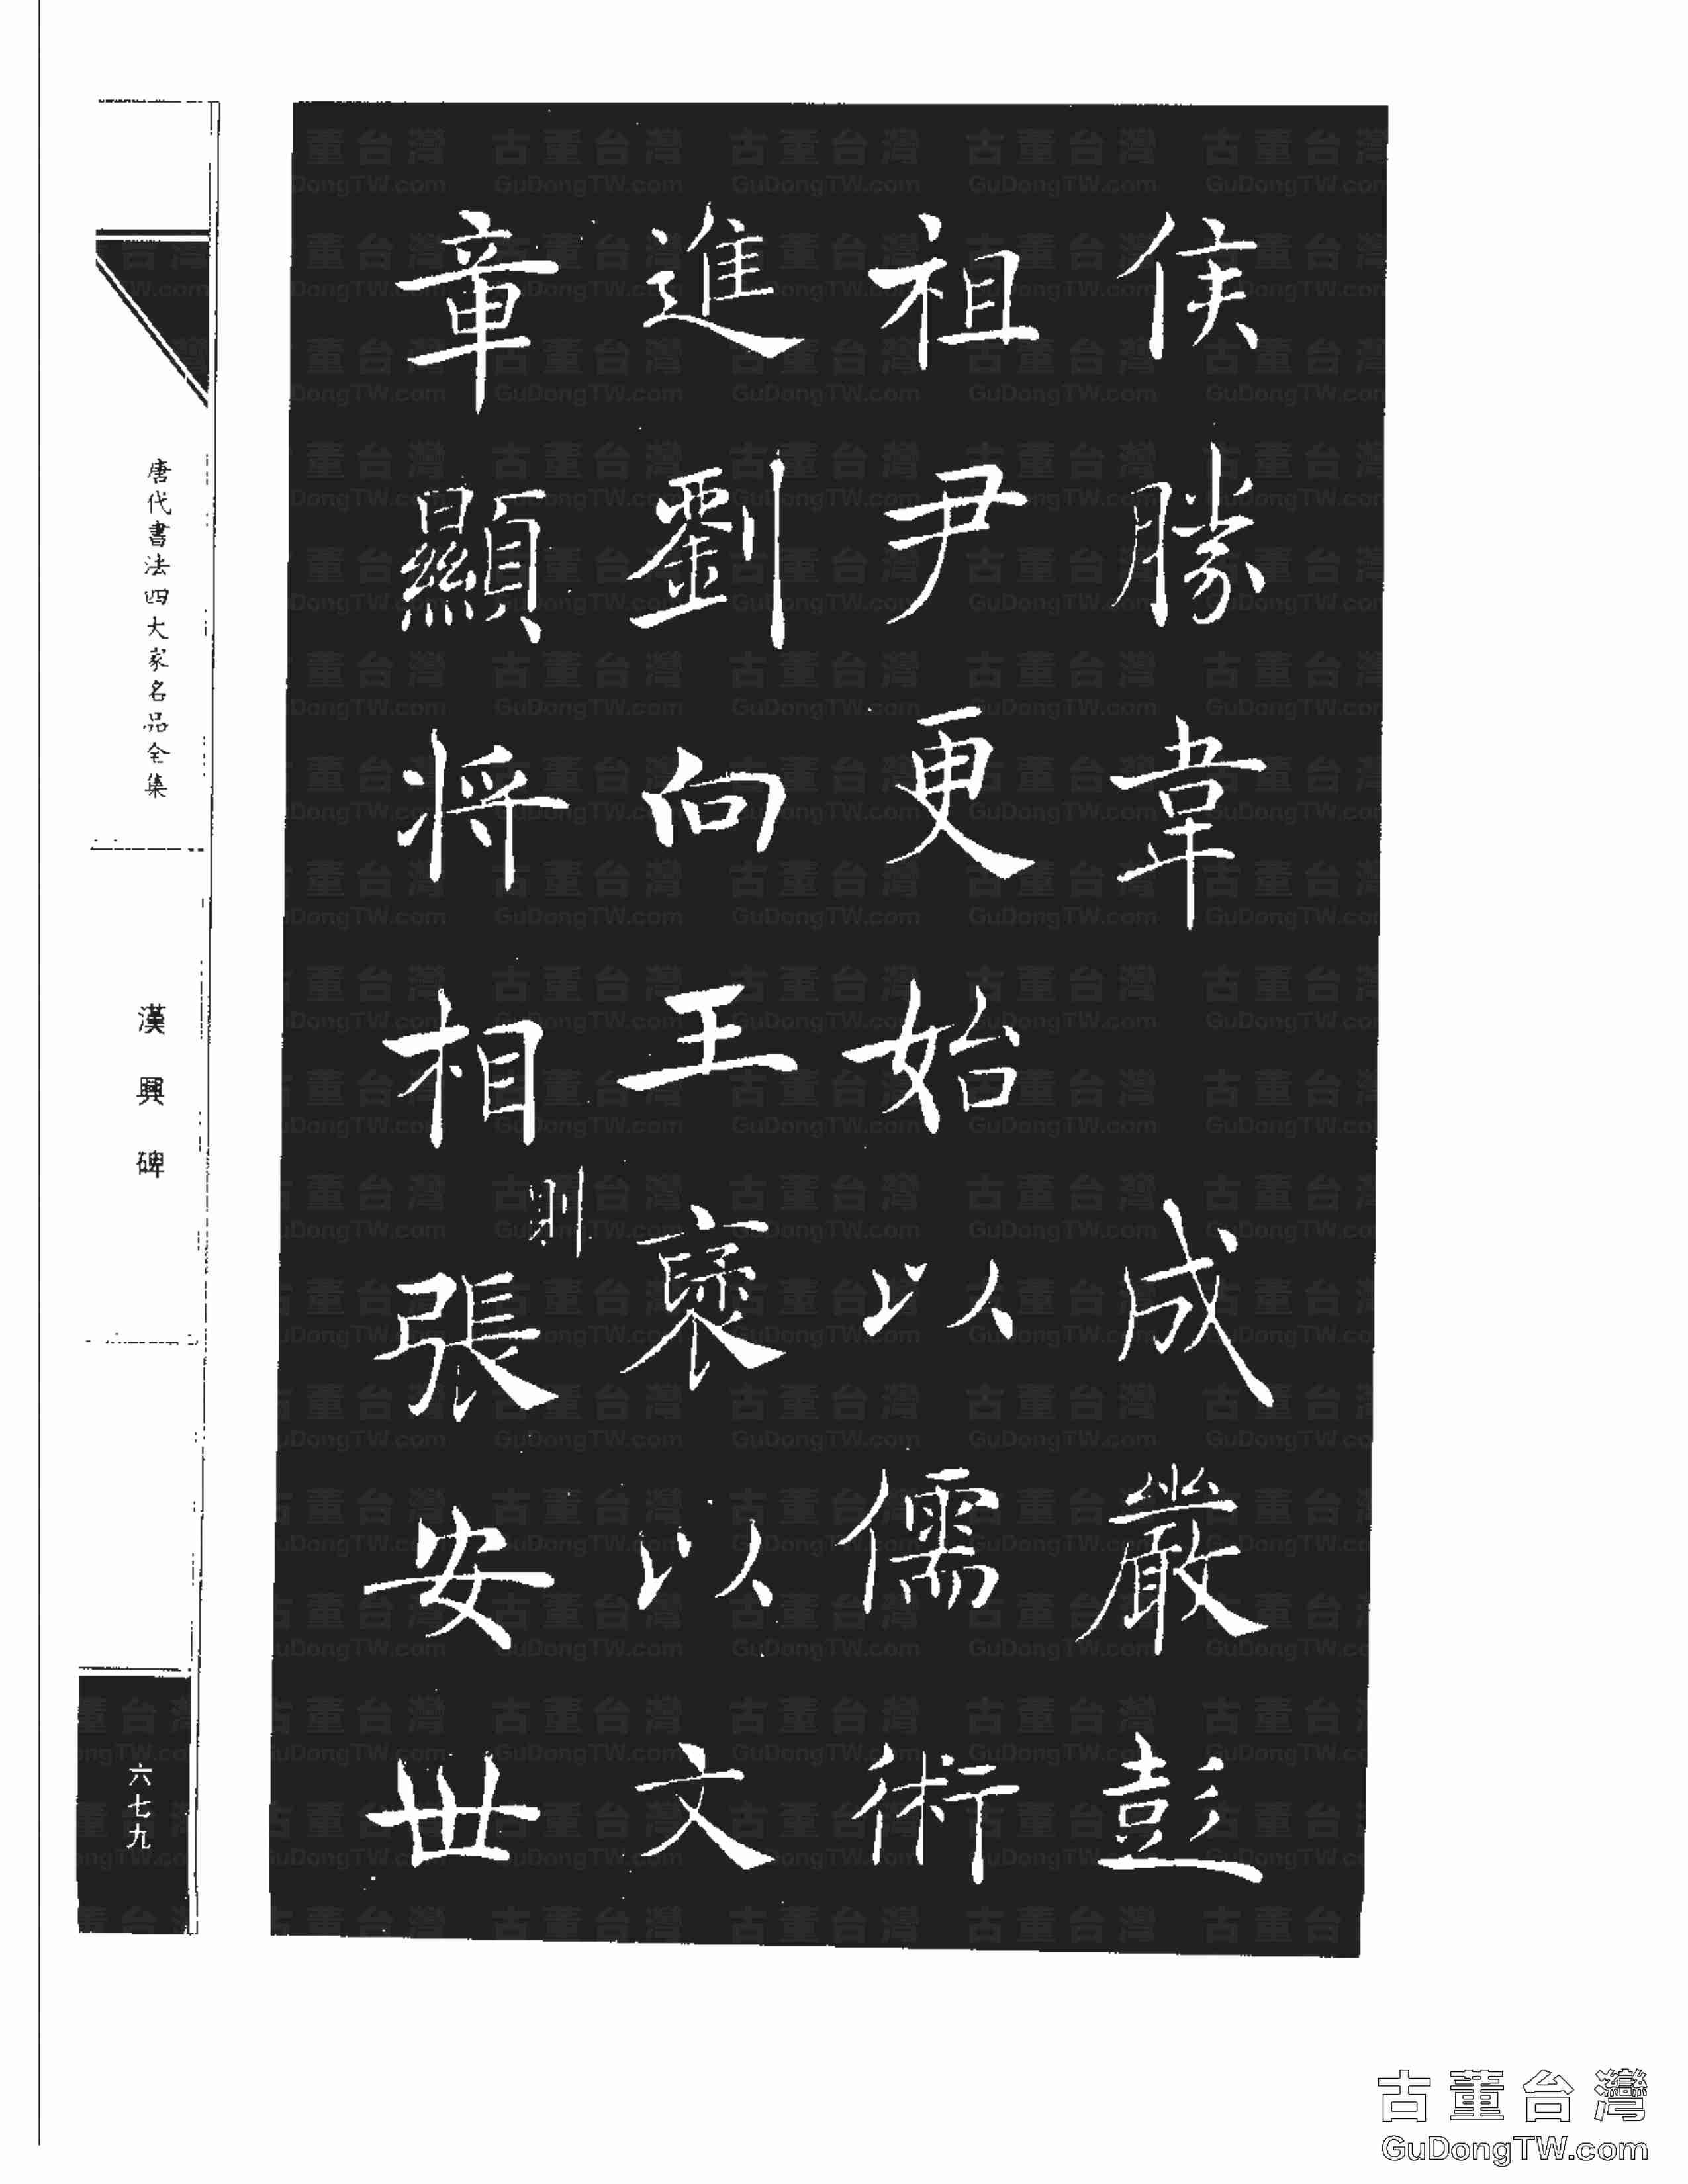 侯勝韋成嚴彭
祖尹更始以儒術
進劉向王褒以文
章顯將相則張安世
唐代書法四大家名品全集
漢興碑
六七九
古董台灣
GuDongTW.com